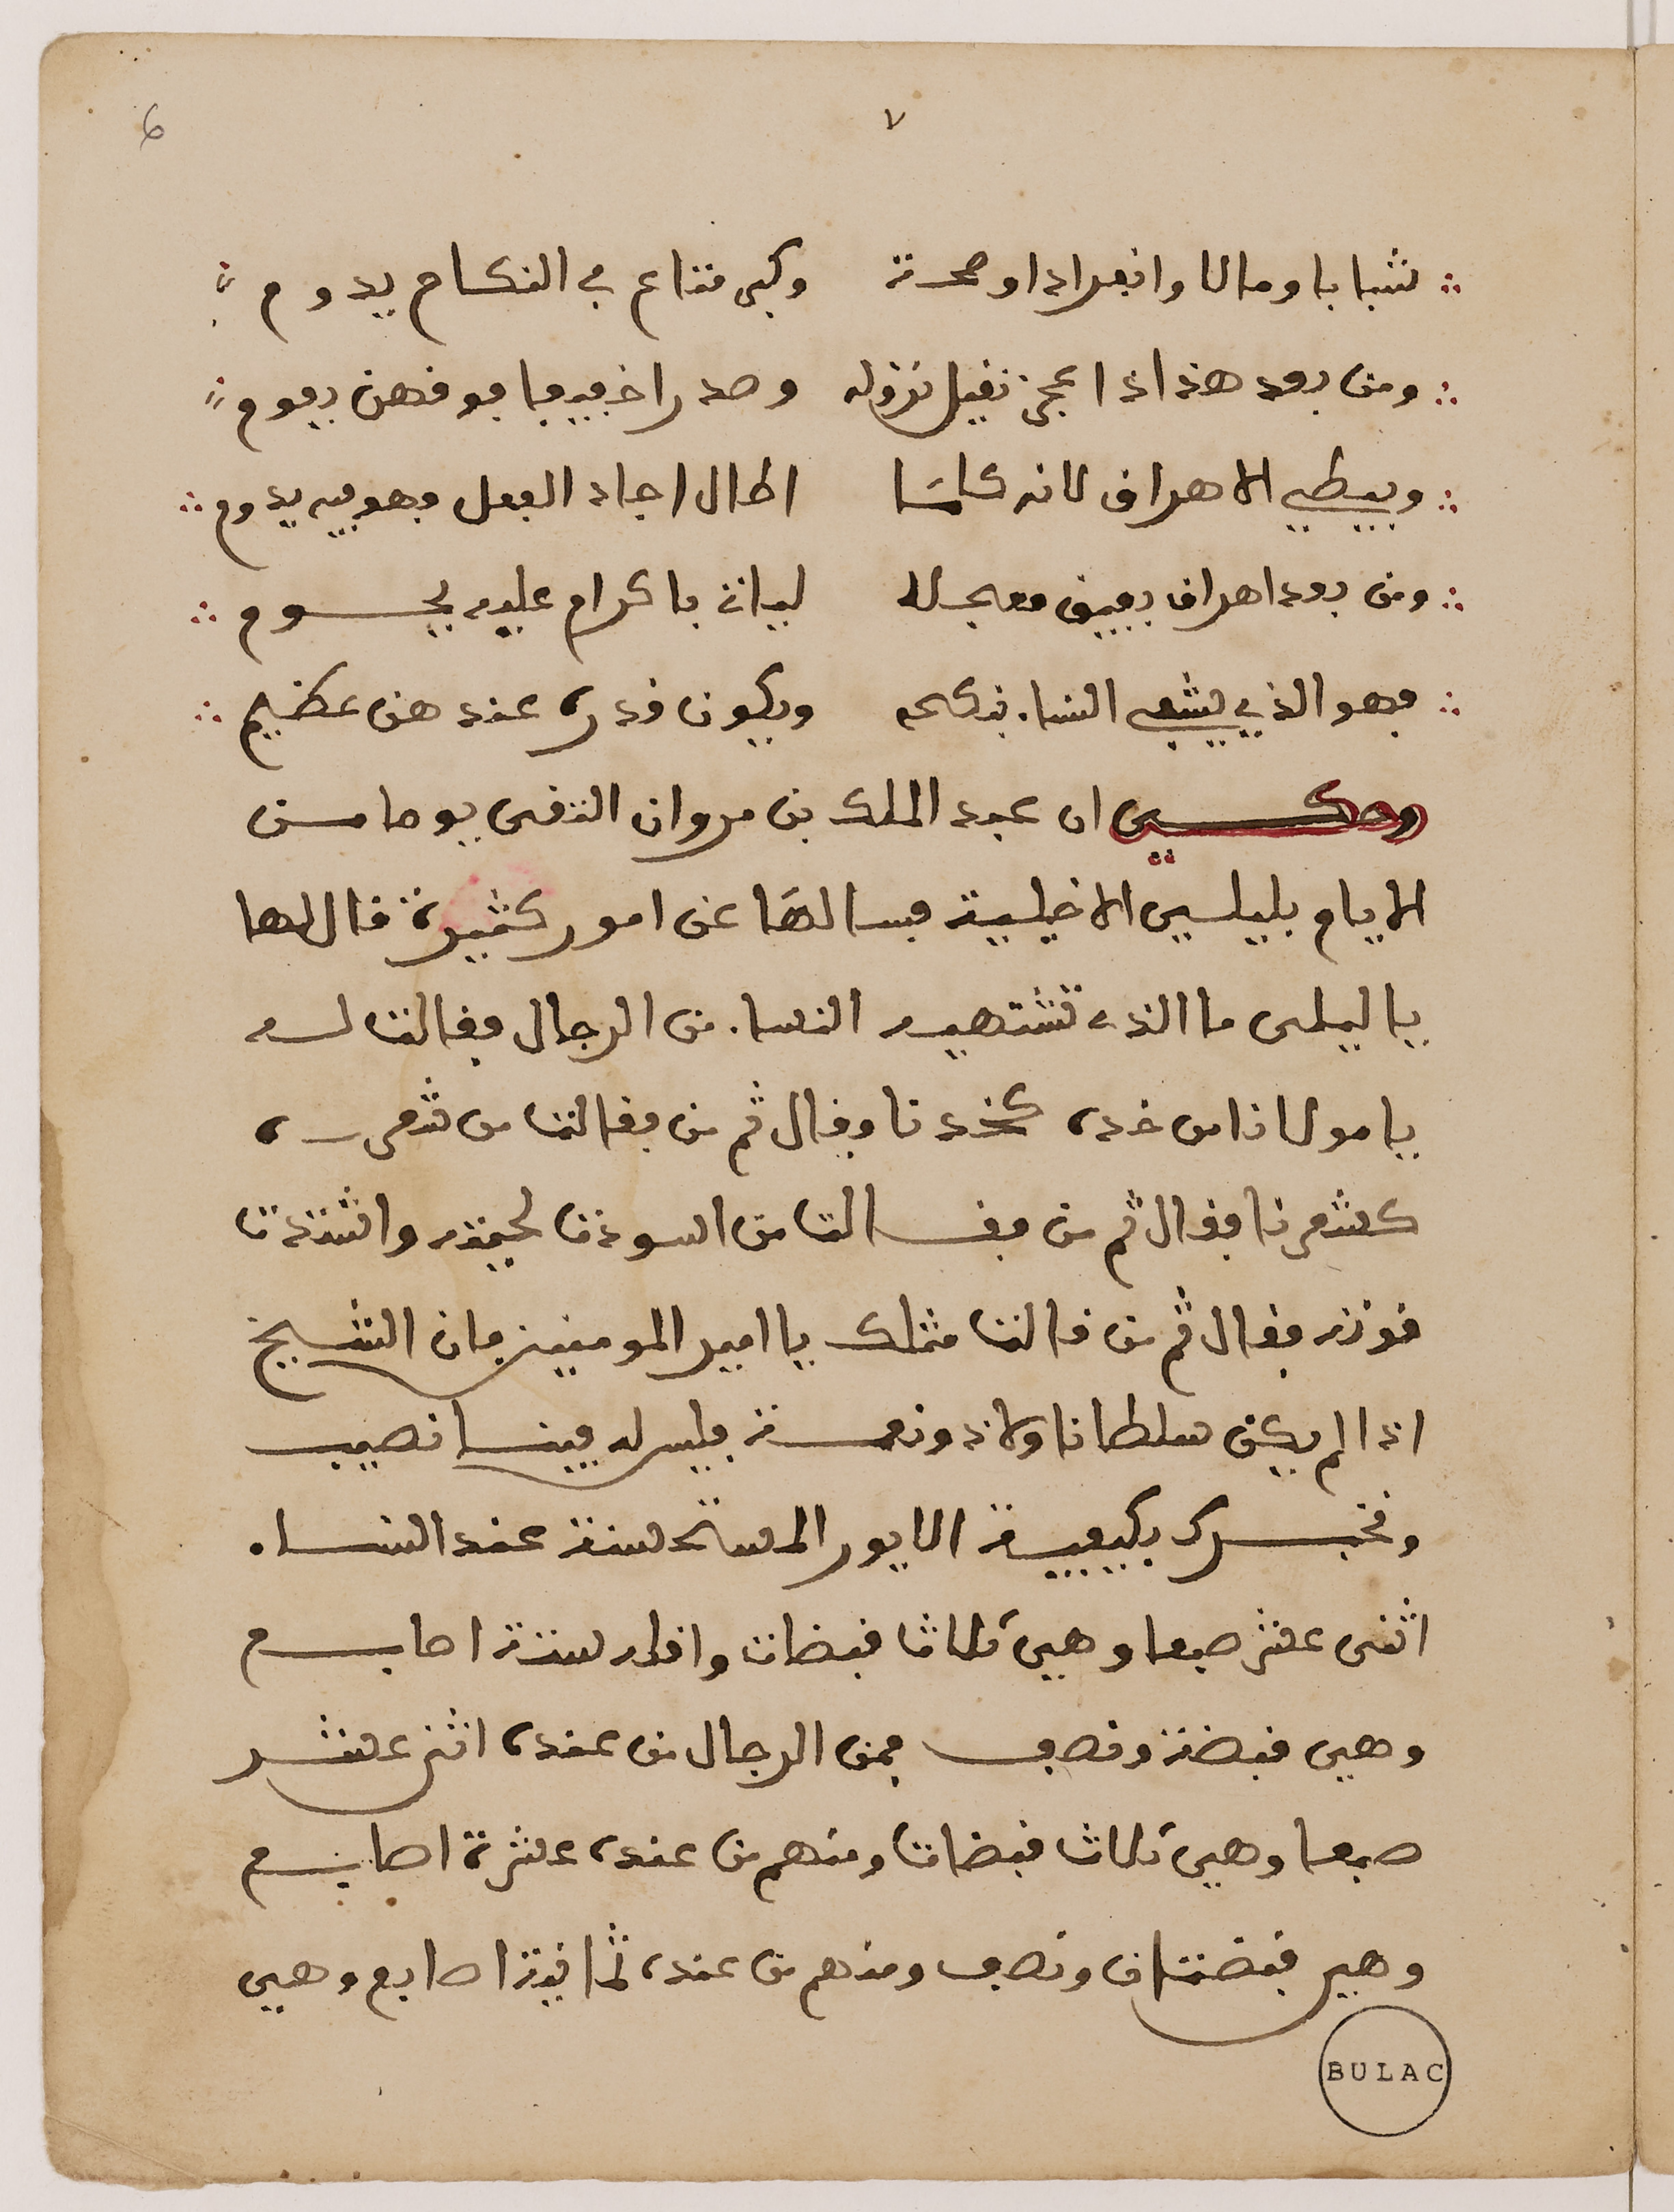 ٧
6
شبابا ومالا وانفرادا وصحة وكبر متاع في النكاح يدوم
ومن بعد هذا اذا عجز ثقيل نزوله وصدرا خفيفا فوقهن يعوم
ويبطي الاهراق لانه كلما اطال اجاد الفعل وهو فيه يدوم
ومن بعد اهراق يفيق معجلا لياتي باكرام عليه يحوم
فهو الذي يشفي النساء بنكحه ويكون قدره عندهن عظيم
وحكي ان عبد الملك بن مروان التقى يوما من
الايام بليلى الاخيلية فسالها عن امور كثيرة قال لها
يا ليلى ما الذي تشتهيه النساء من الرجال فقالت له
يا مولانا من خده كخدنا وقال ثم من فقالت من شعره
كشعرنا فقال ثم من فقالت من اسودت لحيته واشتدت
قوته فقال ثم من قالت مثلك يا امير المومنين فان الشيخ
اذا لم يكن سلطانا ولا ذو نعمة فليس له فينا نصيب
ونخبرك بكيفية الايور المستحسنة عند النساء
اثنى عشر صبعا وهي ثلاث قبضات واقله ستة اصابع
وهي قبضة ونصف فمن الرجال من عنده اثنى عشر
صبعا وهي ثلاث قبضات ومنهم من عنده عشرة اصابع
وهي قبضتان ونصف ومنهم من عنده ثمانية اصابع وهي
BULAC